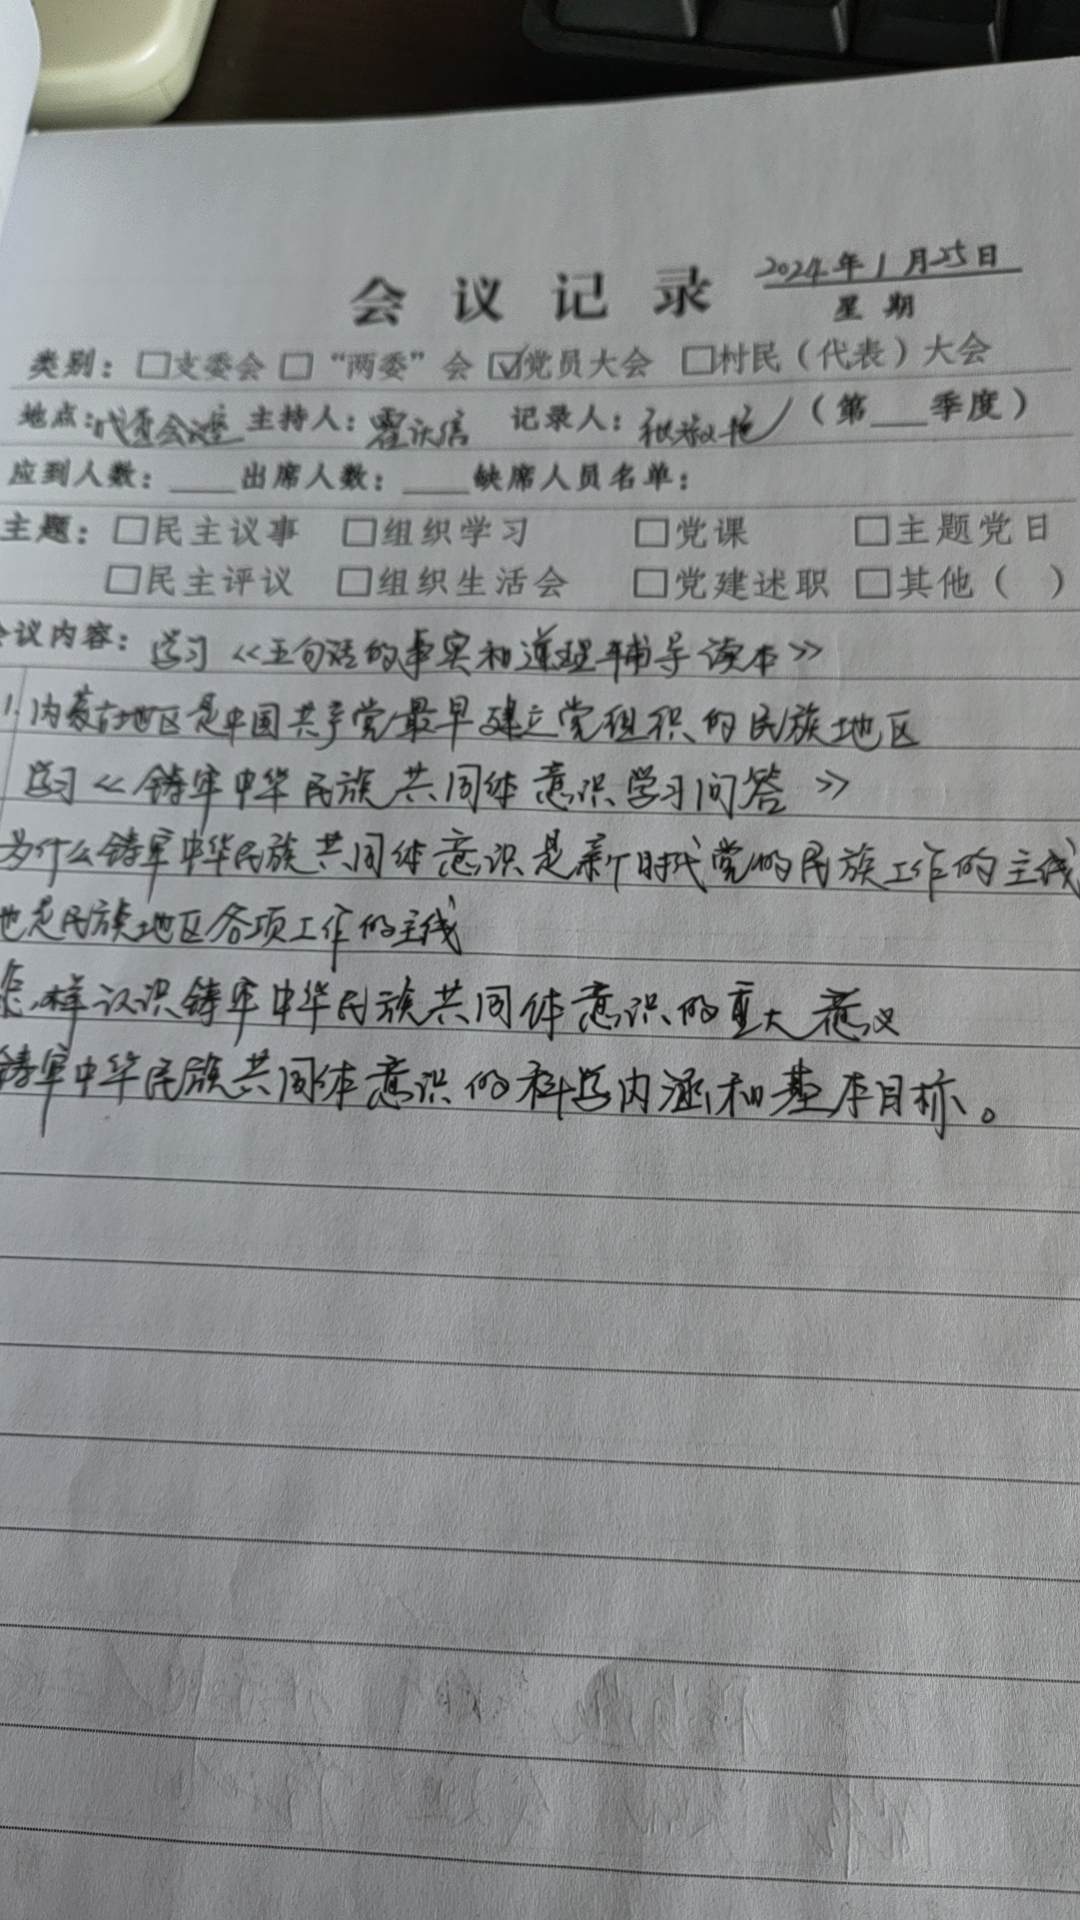 2024年1月25日
会议记录
星期
类别：□支委会 □“两委”会 ☑党员大会 □村民（代表）大会
地点： 主持人： 记录人： （第___季度）
应到人数：___出席人数：___缺席人员名单：
主题：□民主议事 □组织学习 □党课 □主题党日
□民主评议 □组织生活会 □党建述职 □其他（ ）
议内容：学习《五句话的事实和道理辅导读本》
1.内蒙古地区是中国共产党最早建立党组织的民族地区
学习《铸牢中华民族共同体意识学习问答》
为什么铸牢中华民族共同体意识是新时代党的民族工作的主线
也是民族地区各项工作的主线
怎样认识铸牢中华民族共同体意识的重大意义
铸牢中华民族共同体意识的科学内涵和基本目标。